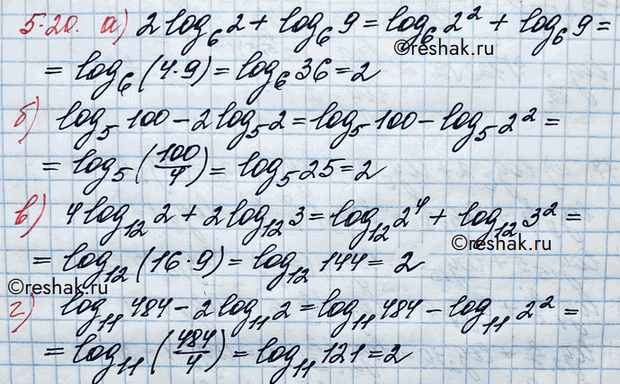 5.20. а) 2 log₆ 2 + log₆ 9 = log₆ 2² + log₆ 9 =
©reshak.ru
= log₆ (4·9) = log₆ 36 = 2
б) log₅ 100 − 2 log₅ 2 = log₅ 100 − log₅ 2² =
= log₅ (100/4) = log₅ 25 = 2
в) 4 log₁₂ 2 + 2 log₁₂ 3 = log₁₂ 2⁴ + log₁₂ 3² =
©reshak.ru
= log₁₂ (16·9) = log₁₂ 144 = 2
©reshak.ru
г) log₁₁ 484 − 2 log₁₁ 2 = log₁₁ 484 − log₁₁ 2² =
= log₁₁ (484/4) = log₁₁ 121 = 2